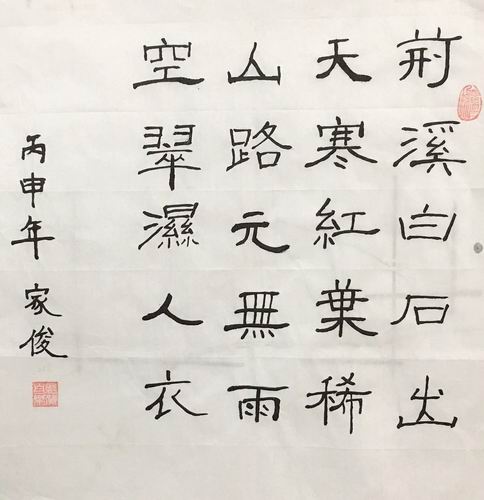 荊溪白石出
天寒紅葉稀
山路元無雨
空翠濕人衣
丙申年 家俊